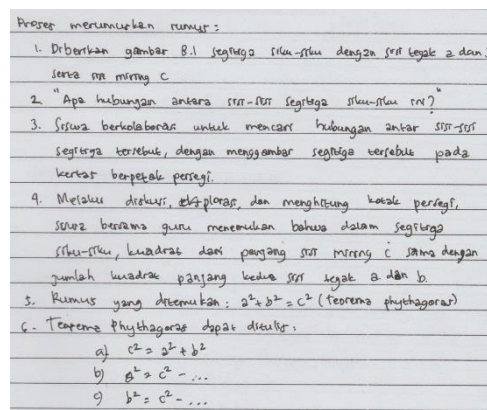 Proses merumuskan rumus :
1. Diberikan gambar 8.1 segitiga siku-siku dengan sisi tegak a dan
serta sisi miring c
2. "Apa hubungan antara sisi-sisi segitiga siku-siku ini?"
3. Siswa berkolaborasi untuk mencari hubungan antar sisi-sisi
segitiga tersebut, dengan menggambar segitiga tersebut pada
kertas berpetak persegi.
4. Melalui diskusi, eksplorasi, dan menghitung kotak persegi,
siswa bersama guru menemukan bahwa dalam segitiga
siku-siku, kuadrat dari panjang sisi miring c sama dengan
jumlah kuadrat panjang kedua sisi tegak a dan b.
5. Rumus yang ditemukan : a² + b² = c² (teorema phythagoras)
6. Teorema Phythagoras dapat ditulis :
a) c² = a² + b²
b) a² = c² - ...
c) b² = c² - ...